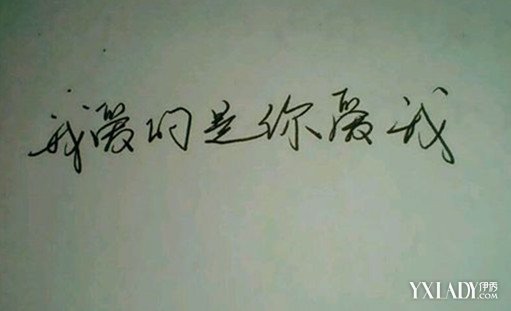 我爱的是你爱我
YXLADY.COM伊秀